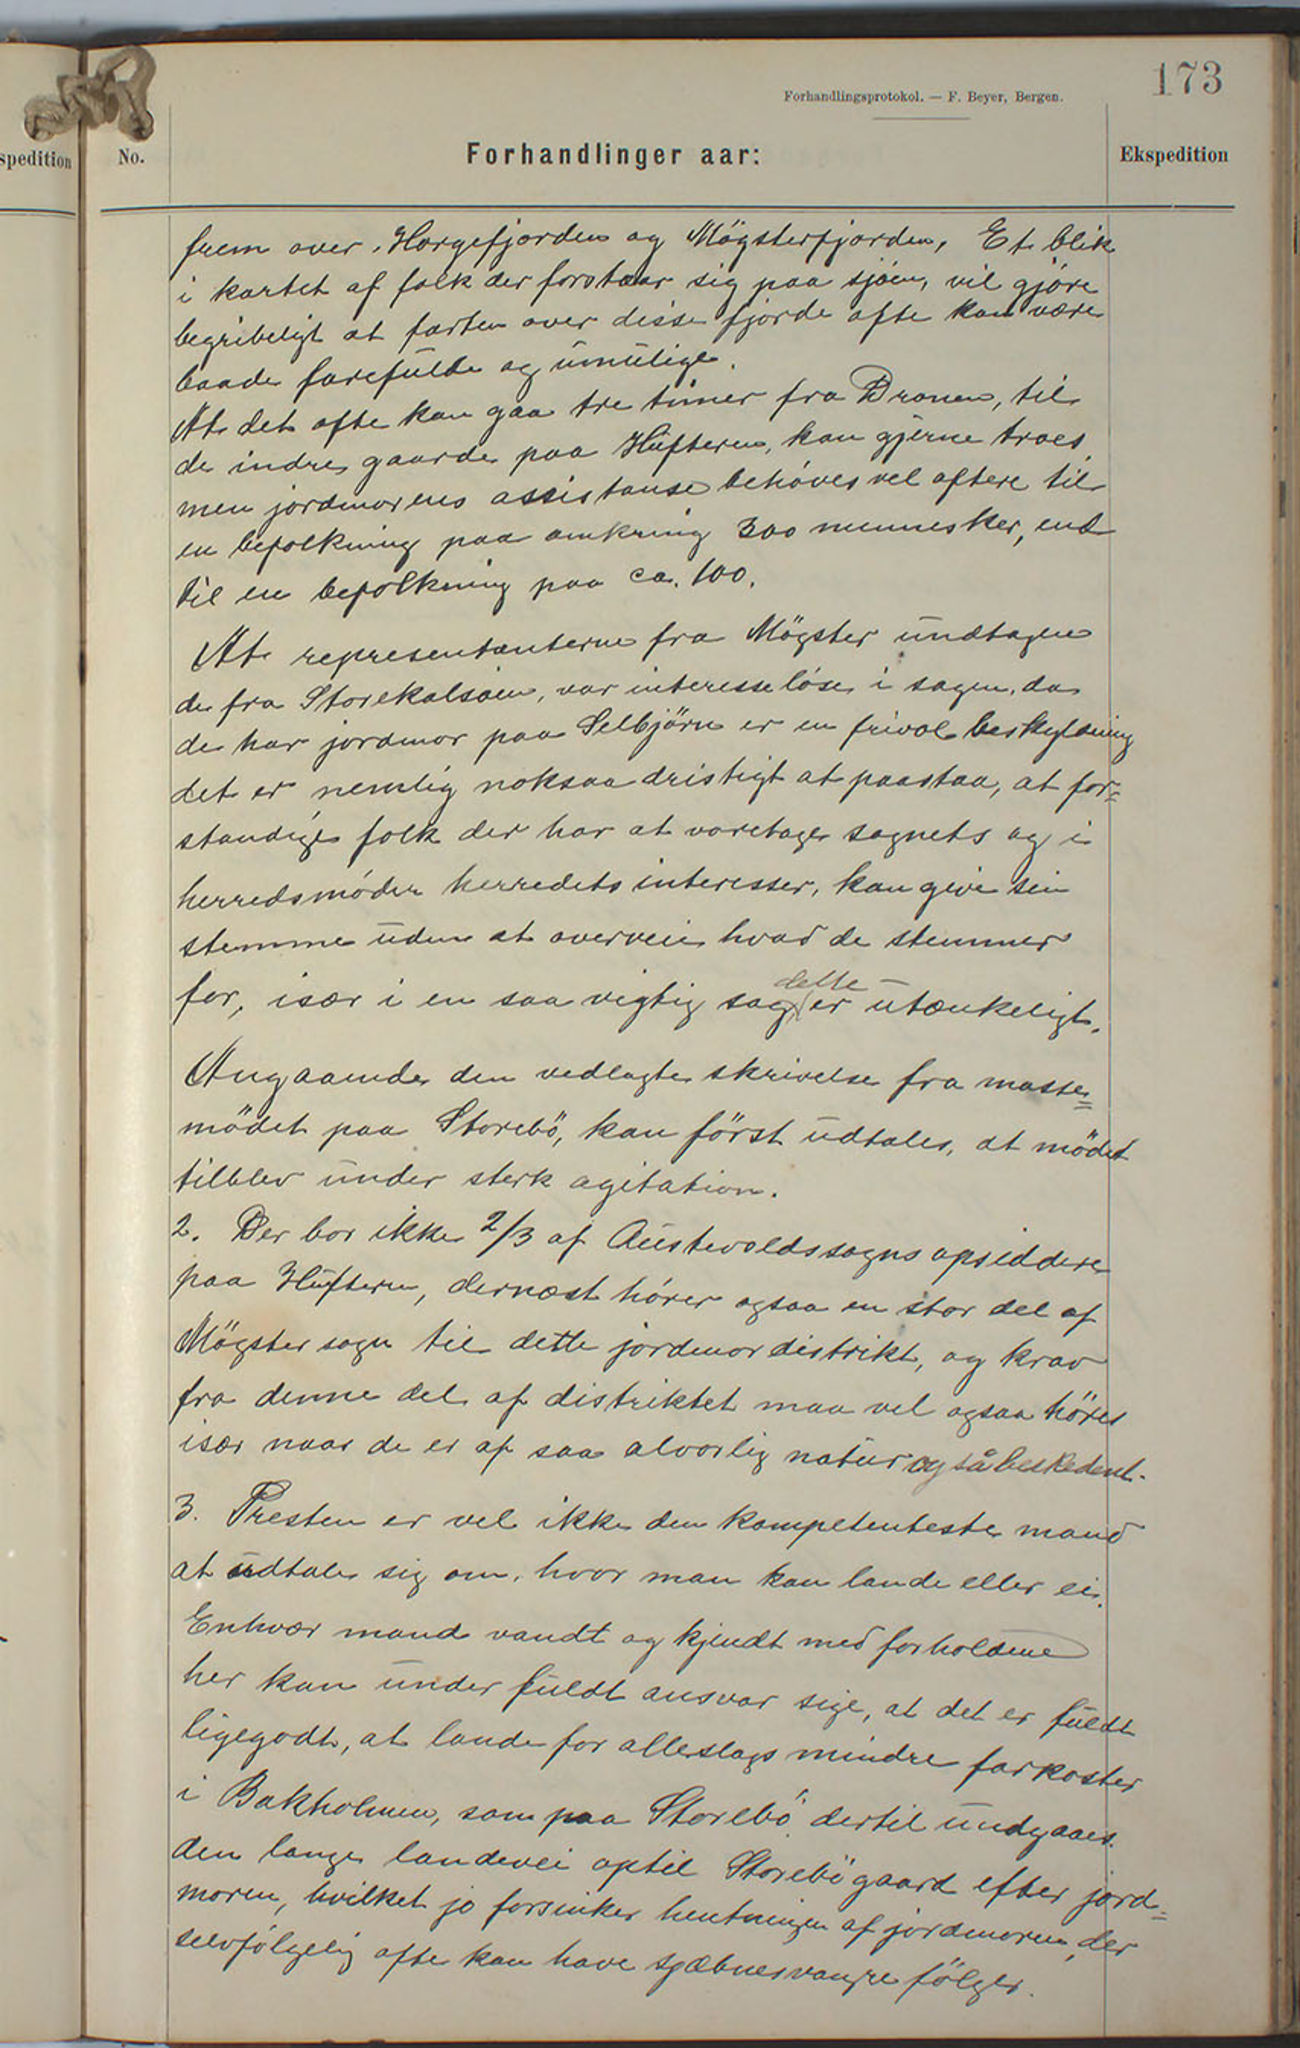 173
Forhandlingsprotokol. — F. Beyer, Bergen.
spedition No. Forhandlinger aar: Ekspedition
frem over Horgefjorden og Mögsterfjorden, Et blik
i kartet af folk der forstaar sig paa sjöen, vil gjöre
begribeligt at farten over disse fjorde ofte kan være
baade farefulde og umulige.
At det ofte kan gaa tre timer fra Dronen, til
de indre gaarde paa Huftern, kan gjerne troes,
men jordmorens assistanse behöves vel oftere til
en befolkning paa omkring 300 mennesker, end
til en befolkning paa ca. 100.
At representanterne fra Mögster undtagen
de fra Storekalsöien, var interesselöse i sagen, da
de har jordmor paa Selbjörn er en frivol beskyldning
det er nemlig noksaa dristigt at paastaa, at for=
standige folk der har at varetage sognets og i
herredsmöder herredets interesser, kan give sin
stemme uden at overveie hvad de stemmer
for, især i en saa vigtig sag, dette er utænkeligt.
Angaaende den vedlagte skrivelse fra masse=
mödet paa Storebö, kan först udtales, at mödet
tilblev under sterk agitation.
2. Der bor ikke 2/3 af Austevolds sogns opsiddere
paa Huftern, dernæst hörer ogsaa en stor del af
Mögster sogn til dette jordmordistrikt, og krav
fra denne del af distriktet maa vel ogsaa höres
især naar de er af saa alvorlig natur og så beskedent.
3. Presten er vel ikke den kompetenteste mand
at udtale sig om, hvor man kan lande eller ei.
Enhvær mand vandt og kjendt med forholdene
her kan under fuldt ansvar sige, at det er fuldt
ligegodt, at lande for alleslags mindre farkoster
i Bakholmen, som paa Storebö, dertil undgaaes
den lange landevei optil Storebögaard efter jord=
moren, hvilket jo forsinker hentningen af jordmoren, der
selvfölgelig ofte kan have skjæbnesvangre fölger.